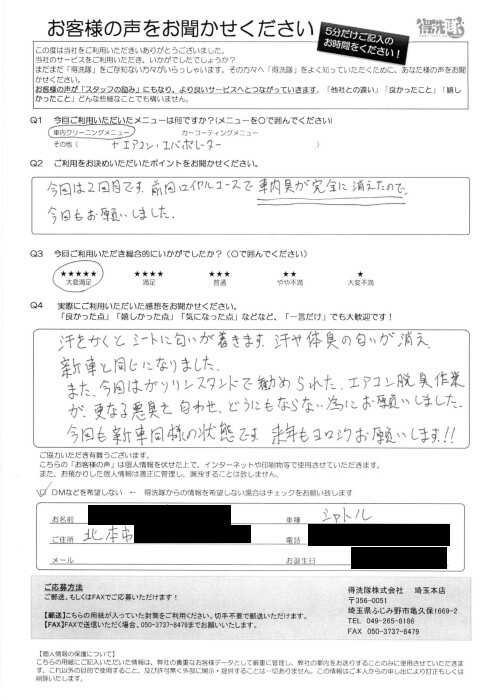 お客様の声をお聞かせください
5分だけご記入の
お時間をください!
得洗隊
この度は当社をご利用いただきありがとうございました。
当社のサービスをご利用いただき、いかがでしたでしょうか?
まだまだ「得洗隊」をご存知ない方々がいらっしゃいます。その方々へ「得洗隊」をよく知っていただくために、あなた様の声をお聞
かせください。
お客様の声が「スタッフの励み」にもなり、より良いサービスへとつながっていきます。「他社との違い」「良かったこと」「嬉し
かったこと」どんな些細なことでも構いません。
Q1 今回ご利用いただいたメニューは何ですか?(メニューを○で囲んでください)
車内クリーニングメニュー カーコーティングメニュー
その他( + エアコン・エバポレーター )
Q2 ご利用をお決めいただいたポイントをお聞かせください。
今回は2回目です。前回ロイヤルコースで車内臭が完全に消えたので、
今回もお願いしました。
Q3 今回ご利用いただき総合的にいかがでしたか?(○で囲んでください)
★★★★★ ★★★★ ★★★ ★★ ★
大変満足 満足 普通 やや不満 大変不満
Q4 実際にご利用いただいた感想をお聞かせください。
「良かった点」「嬉しかった点」「気になった点」などなど、「一言だけ」でも大歓迎です!
汗をかくとシートに匂いが着きます。汗や体臭の匂いが消え、
新車と同じになりました。
また、今回はガソリンスタンドで勧められた、エアコン脱臭作業
が、更なる悪臭を匂わせ、どうにもならない為にお願いしました。
今回も新車同様の状態です。来年もヨロシクお願いします!!
ご協力いただき有難うございます。
こちらの「お客様の声」は個人情報を伏せた上で、インターネットや印刷物等で使用させていただきます。
また、お預かりした個人情報は適正に管理し、漏洩することは致しません。
DMなどを希望しない ← 得洗隊からの情報を希望しない場合はチェックをお願い致します
お名前 車種 シャトル
ご住所 北本市 電話
メール お誕生日
ご応募方法
ご郵送、もしくはFAXでご応募いただけます!
【郵送】こちらの用紙が入っていた封筒をご利用ください。切手不要で郵送いただけます。
【FAX】FAXで送信いただく場合、050-3737-8479までお願いいたします。
得洗隊株式会社 埼玉本店
〒356-0051
埼玉県ふじみ野市亀久保1669-2
TEL 049-265-8186
FAX 050-3737-8479
【個人情報の保護について】
こちらの用紙にご記入いただいた情報は、弊社の貴重なお客様データとして厳重に管理し、弊社の車内をお送りすることのみに使用させていただきま
す。これ以外の目的で使用すること、及び許可無く外部に開示・提供することは一切ありません。この情報はご本人からの申し出により訂正もしくは
削除いたします。